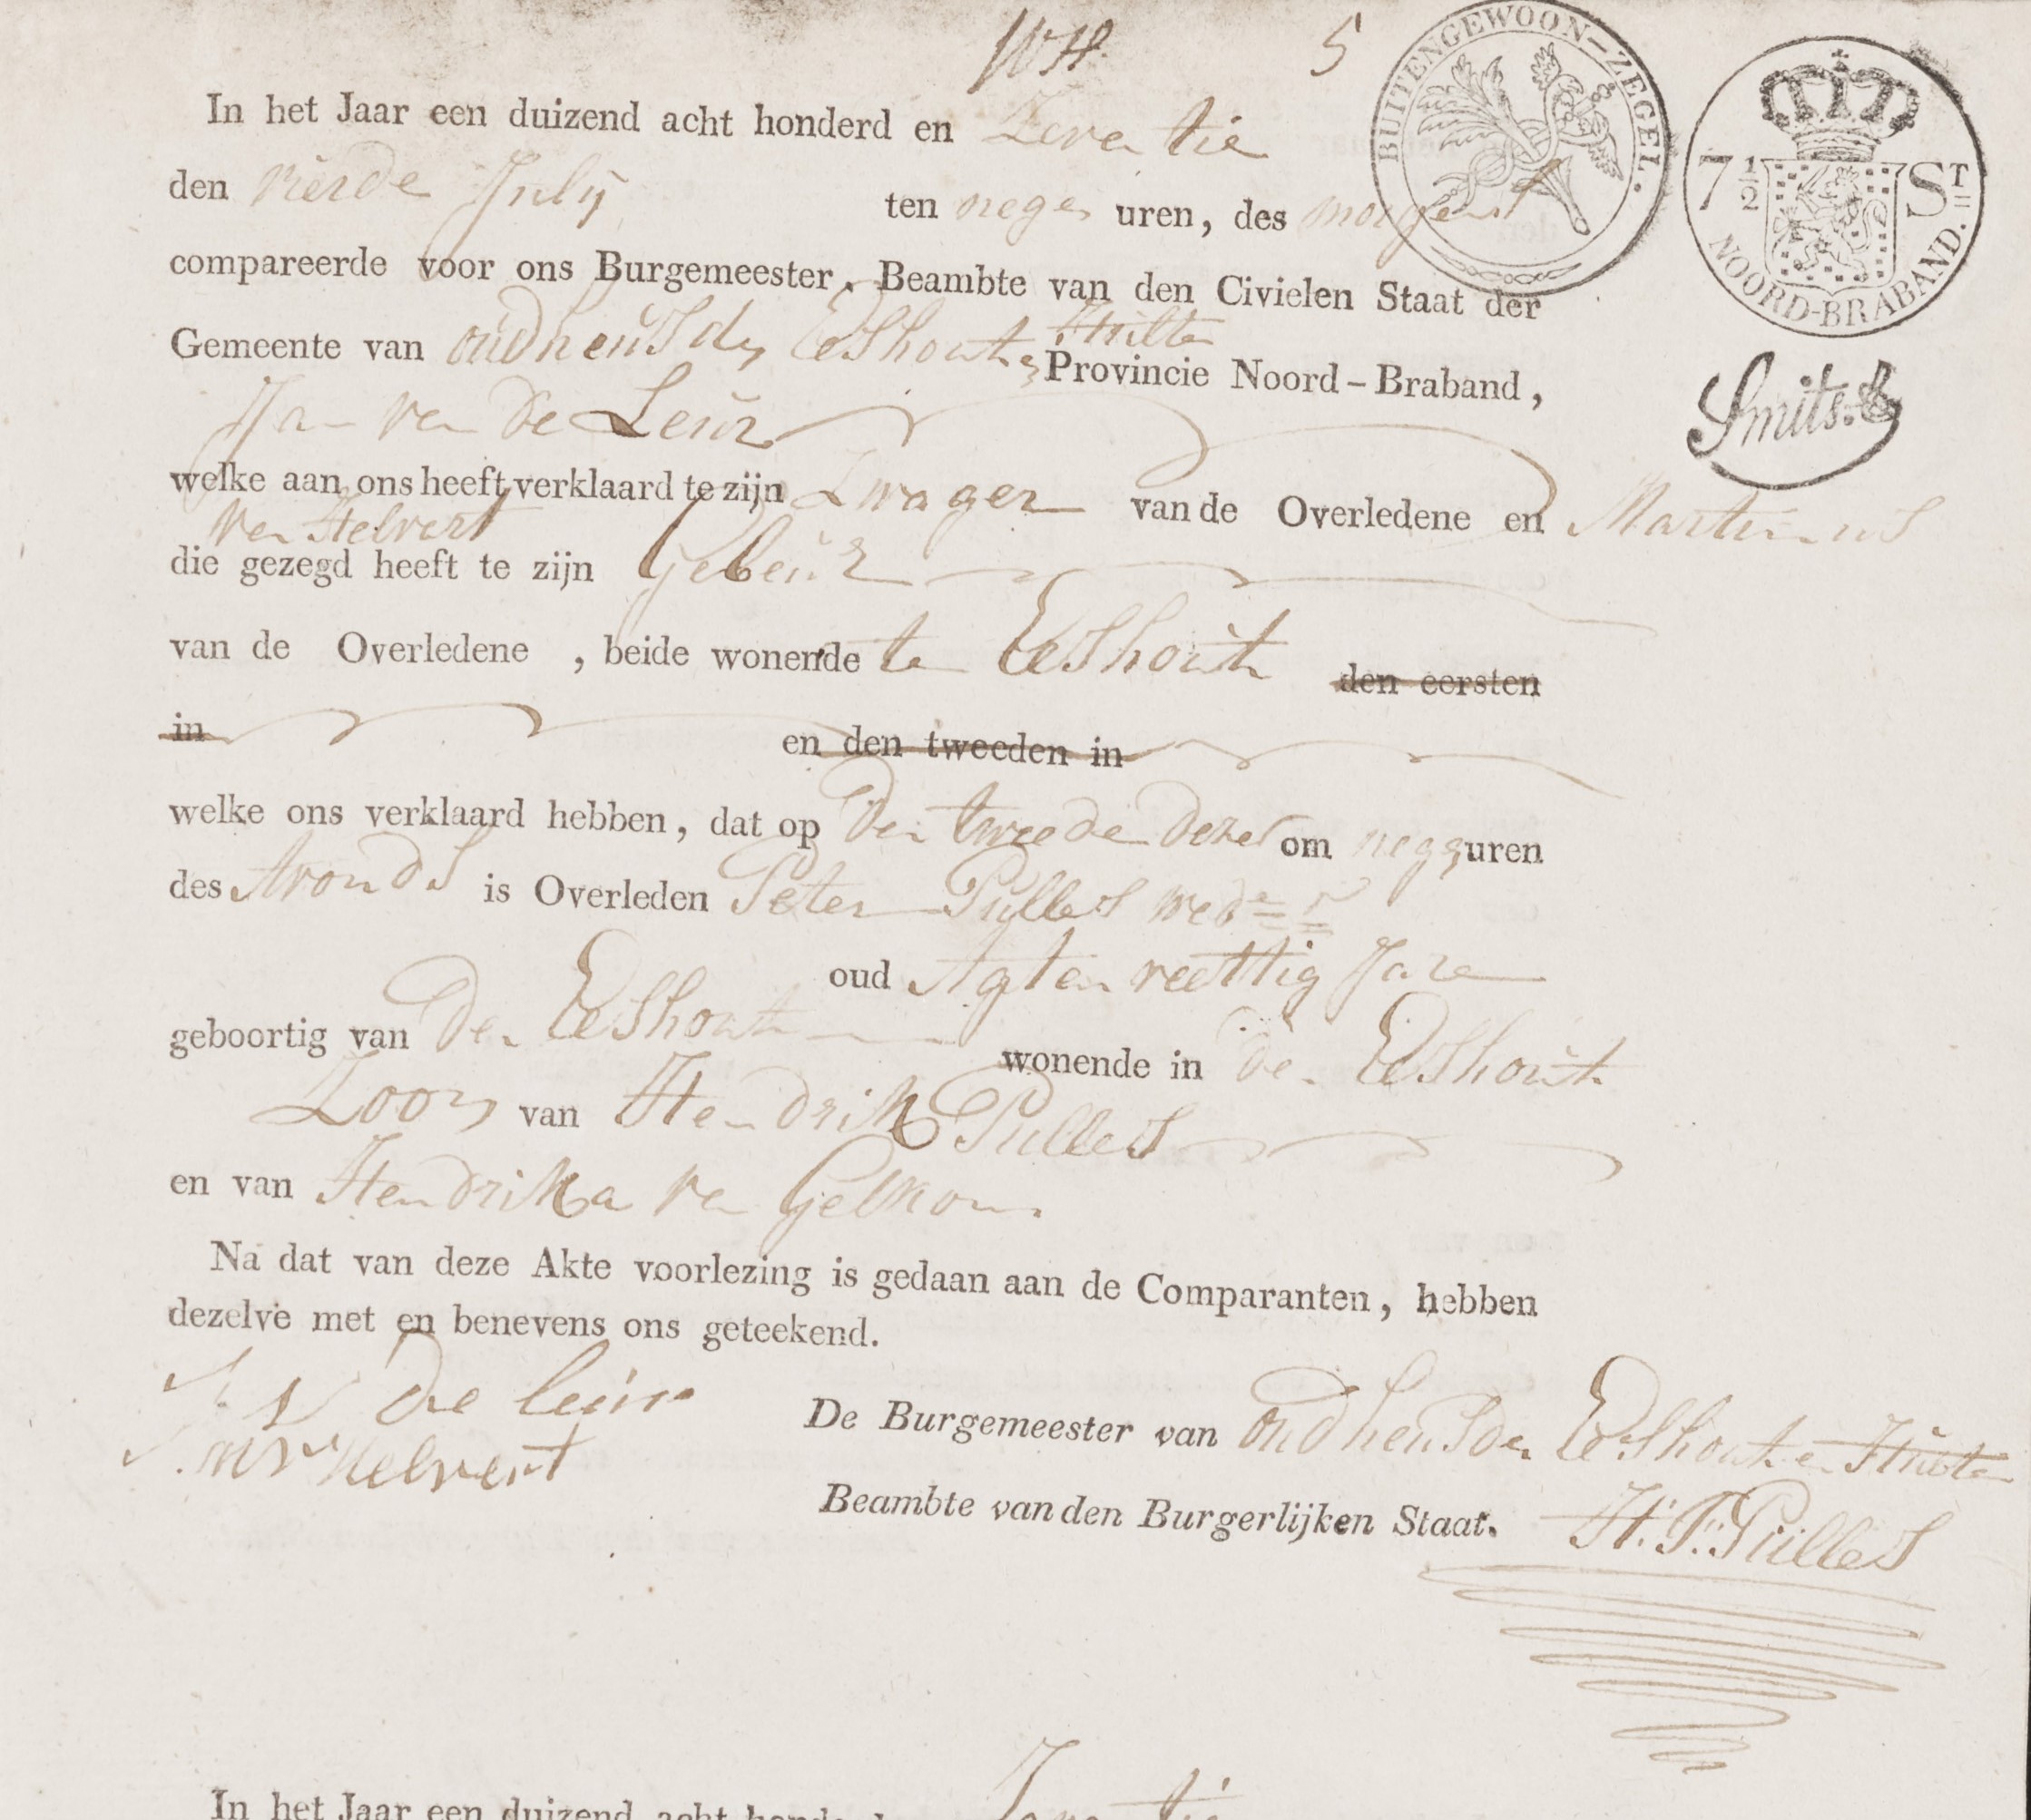 WH. 5
BUITENGEWOON-ZEGEL.
7 1/2 ST
NOORD-BRABAND.
Smits.
In het Jaar een duizend acht honderd en Zeventie
den vierde July ten negen uren, des morgens
compareerde voor ons Burgemeester, Beambte van den Civielen Staat der
Gemeente van oudheusden Eeshout en Hulten Provincie Noord-Braband,
Jan van de Leur
welke aan ons heeft verklaard te zijn Zwager van de Overledene en Martinus
van Helvert
die gezegd heeft te zijn Gebeur
van de Overledene , beide wonende te Eeshout den eersten
in en den tweeden in
welke ons verklaard hebben, dat op den tweede dezes om negen uren
des Avonds is Overleden Peter Pulles wed=r=
oud Agtenveettig Jare
geboortig van den Eeshout wonende in den Eeshout
Zoon van Hendrik Pulles
en van Hendrika van
Na dat van deze Akte voorlezing is gedaan aan de Comparanten, hebben
dezelve met en benevens ons geteekend.
J v de leur
M v Helvert
De Burgemeester van oudheusden Eeshout en Hulten
Beambte van den Burgerlijken Staat. H. F. Pulles
In het Jaar een duizend acht